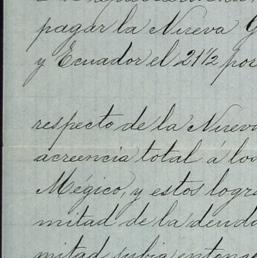 pagar la Nueva G
y Ecuador el 21½ por
respecto de la Nueva
acreencia total á los
Mégico, y estos logra
mitad de la deuda
mitad subia entonce